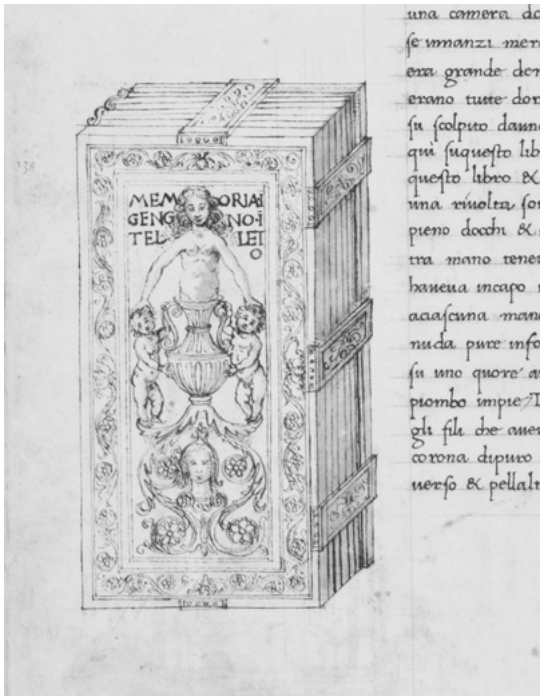 MEMORIAI
GENGNO·I
TELLET
O
una camera do
se innanzi mer
era grande den
erano tutte dor
fu scolpito dauno
qui suquesto lib
questo libro &
una riuolta son
pieno docchi &
tra mano tene
haueua incapo
aciascuna mano
nuda pure info
fu uno quore a
piombo impie T
gli fili che aue
corona dipuro
uerso & pellal